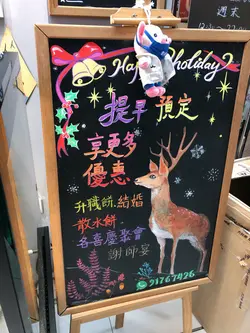 週末
Happy holiday
提早 預定
享更多
優惠
升職餅.結婚
散水餅.
各喜慶聚會
謝師宴
21767426